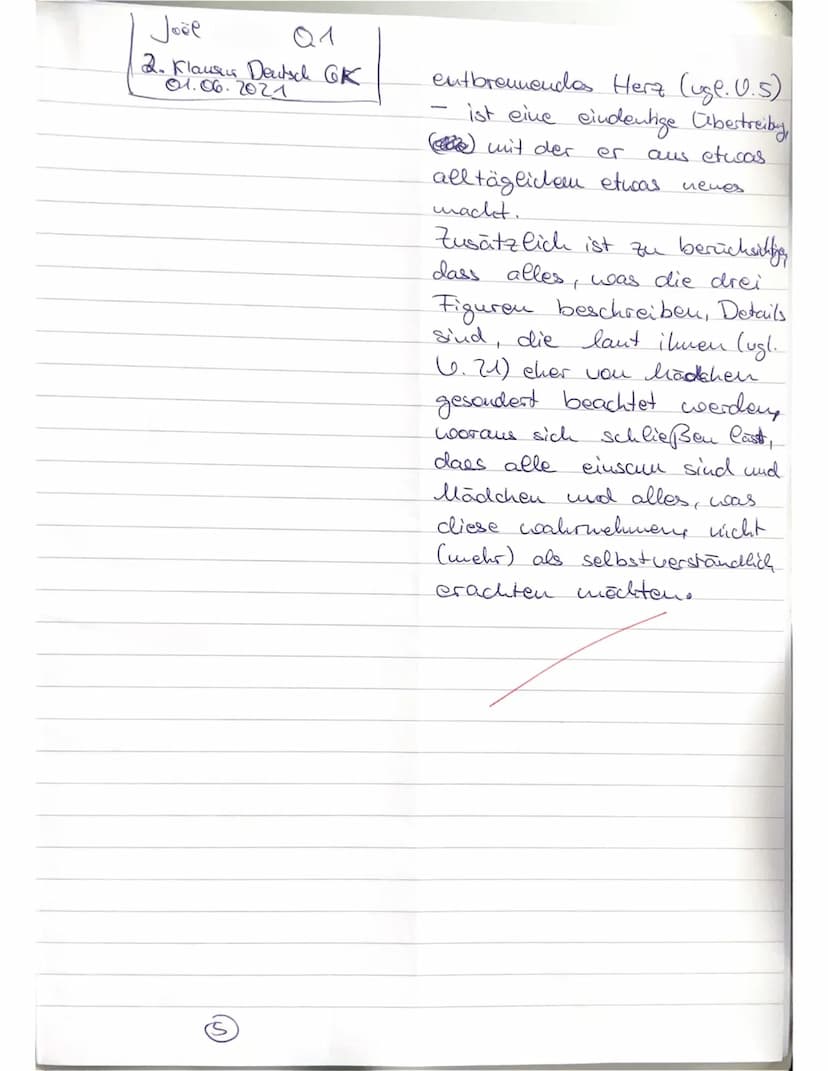 Joël Q1
2. Klausur Deutsch GK
01.06.2021
entbrennendes Herz (vgl. V. 5)
– ist eine eindeutige Übertreibung,
mit der er aus etwas
alltäglichem etwas neues
macht.
Zusätzlich ist zu berücksichtigen,
dass alles, was die drei
Figuren beschreiben, Details
sind, die laut ihnen (vgl.
V. 21) eher von Mädchen
gesondert beachtet werden,
woraus sich schließen läst,
dass alle einsam sind und
Mädchen und alles, was
diese wahrnehmen, nicht
(mehr) als selbstverständlich
erachten möchten.
5